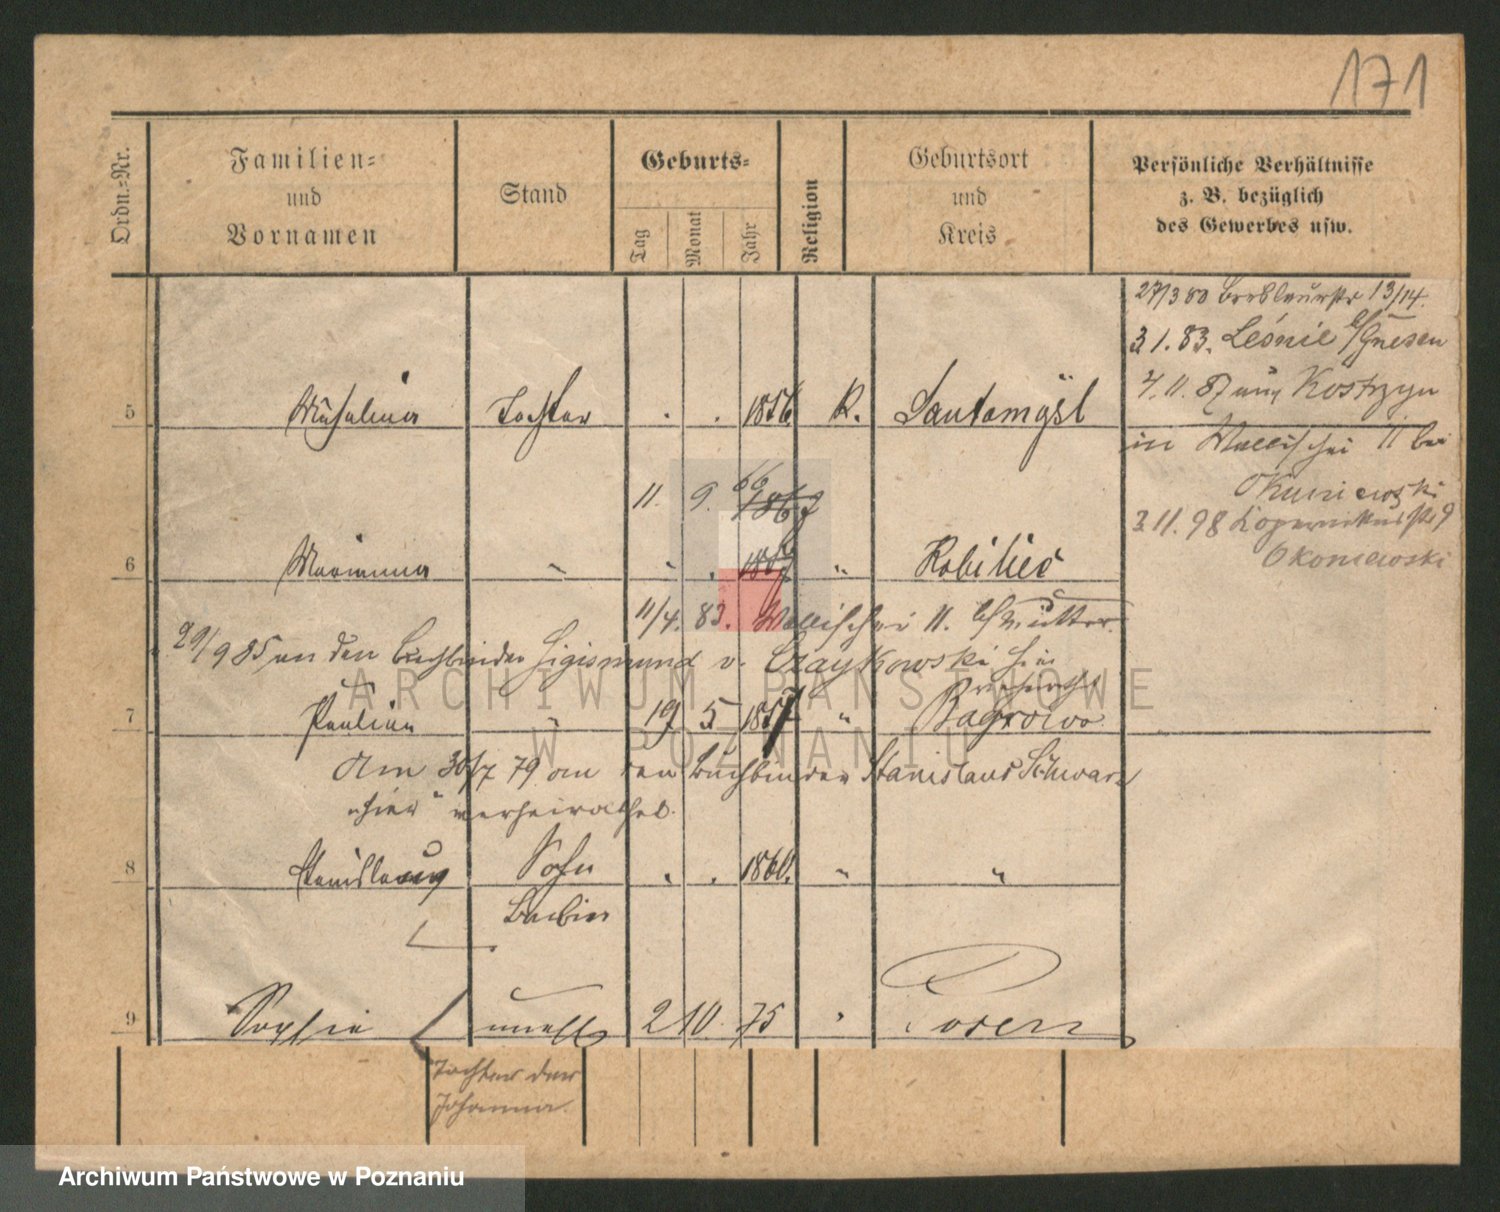 171
Ordn.-Nr.
Familien-
und
Vornamen
Stand
Geburts-
Tag
Monat
Jahr
Religion
Geburtsort
und
Kreis
Persönliche Verhältnisse
z. B. bezüglich
des Gewerbes usw.
27/3 80 Breslauerstr 13/14.
3.1.83. Leonie b/Gnesen
4.11.87 aus Kostrzyn
5 Michalina Tochter . . 1856 K. Santomysl
in Wallischei 11 bei
Okuniewski
11. 9. 66 1867
3.11.98 Kopernikusstr 9
Okoniewski
6 Marianna " " . 1867 "
11/4. 83. Wallischei 11. b/Mutter.
29/9 85 an den Buchbinder Sigismund v. Czaykowski hier
verheirathet
7 Pauline " 19 5 1857 " Bagrowo
Am 30/7 79 an den Buchbinder Stanislaus Schwarz
"hier" verheirathet.
8 Stanislaus Sohn " . 1860. " "
Barbier
9 Sophie unehl 2 10. 75 " Posen
Tochter der
Johanna
ARCHIWUM PAŃSTWOWE
W POZNANIU
Archiwum Państwowe w Poznaniu